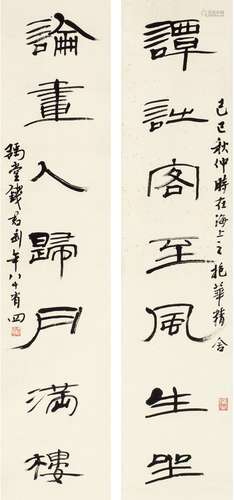 己巳秋仲時在海上之抱華精舍
譚詩客至風生坐
論畫人歸月滿樓
豫堂錢君匋年八十有四